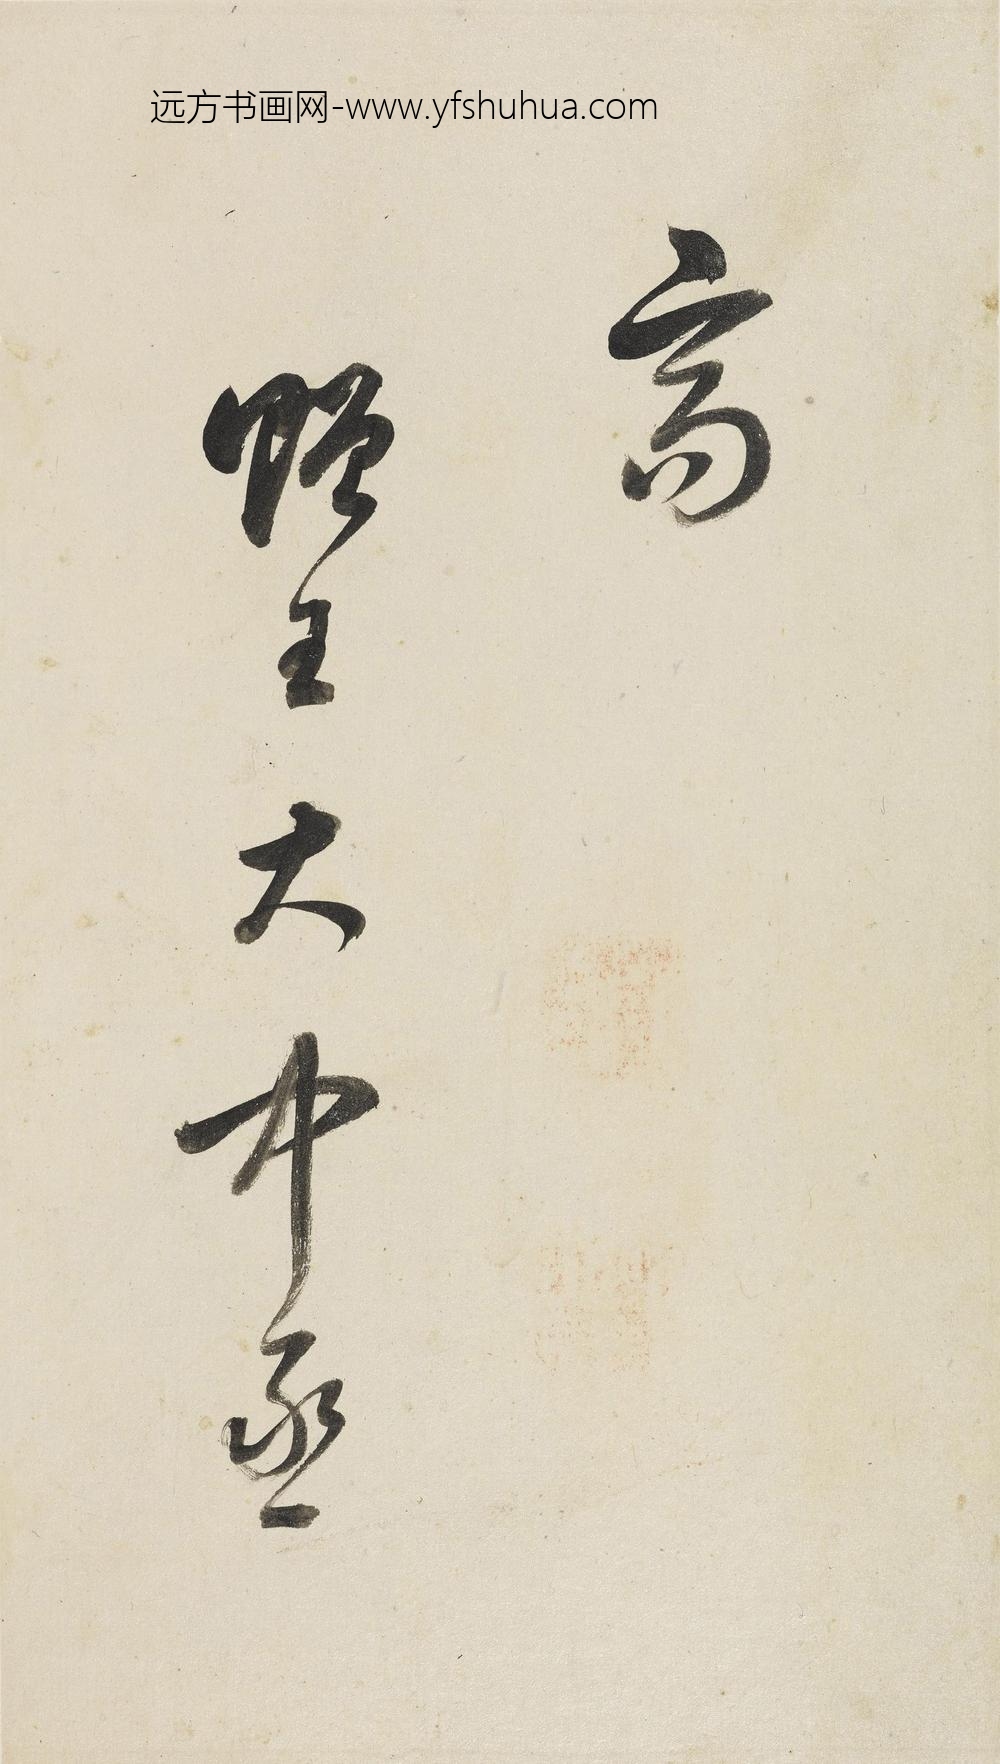 远方书画网-www.yfshuhua.com
高
贈王大中丞